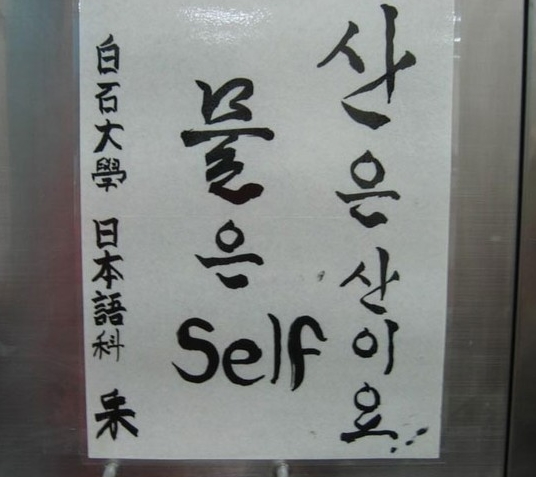 산은산이요..
물은 Self
白石大學 日本語科